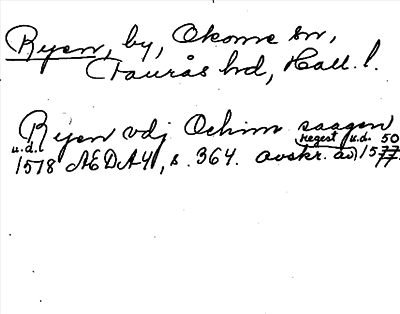 Ryen, by, Okome sn,
Faurås hd, Hall. l.
Ryen vdj Ochim saagen
u.d. regest u.d. 50
1578 AEDA4, s. 364. avskr. av) 1577.